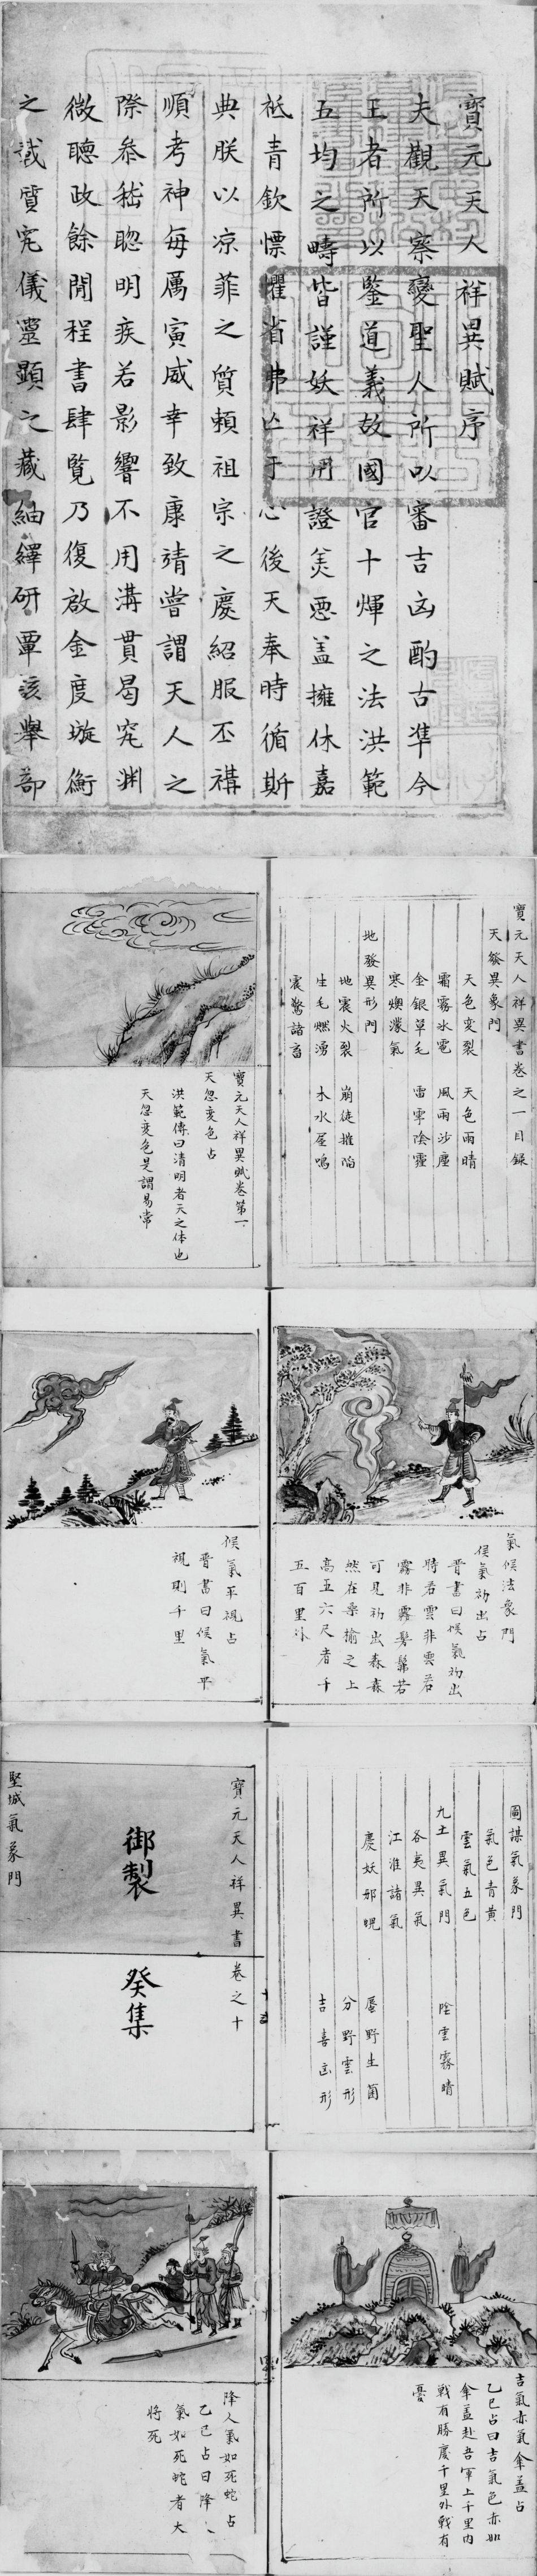 寶元天人祥異賦序
夫觀天察變聖人所以審吉凶酌古準今
王者所以鑒道義故國官十煇之法洪範
五均之疇皆謹妖祥用證美惡蓋擁休嘉
祗青欽慄懼省弗亡于心後天奉時循斯
典朕以凉菲之質賴祖宗之慶紹服丕構
順考神每厲寅威幸致康靖嘗謂天人之
際叅嵇聰明疾若影響不用溝貫曷究淵
微聽政餘閒程書肆覽乃復啟金度璇衡
之質究儀靈顯之藏紬繹研覃該舉部
寶元天人祥異書卷之一目録
天發異象門
天色变裂 天色雨晴
霜霧冰雹 風雨沙塵
金銀草毛 雷霅陰霾
寒燠濛氣
地發異形門
地震火裂 崩徒摧陷
生毛燃湧 木水屋鳴
震驚諸畜
寶元天人祥異賦卷第一
天忽变色占
洪範傳曰清明者天之体也
天忽变色是謂易常
氣候法象門
候氣初出占
晋書曰候氣初出
時若雲非雲若
霧非霧髣髴若
可見初出森森
然在桑榆之上
高五六尺者千
五百里外
候氣平視占
晋書曰候氣平
視則千里
圖謀氣象門
氣色青黄
雲氣五色 陰雲霧晴
九土異氣門
各夷異氣 蜃野生菌
江淮諸氣 分野雲形
慶妖邪晛 吉喜凶形
寶元天人祥異書 卷之十
御製 癸集
堅城氣象門
吉氣赤氣傘蓋占
乙巳占曰吉氣色赤如
傘蓋赴吾軍上千里内
戦有勝慶千里外戦有
憂
降人氣如死蛇占
乙巳占曰降人
氣如死蛇者大
將死